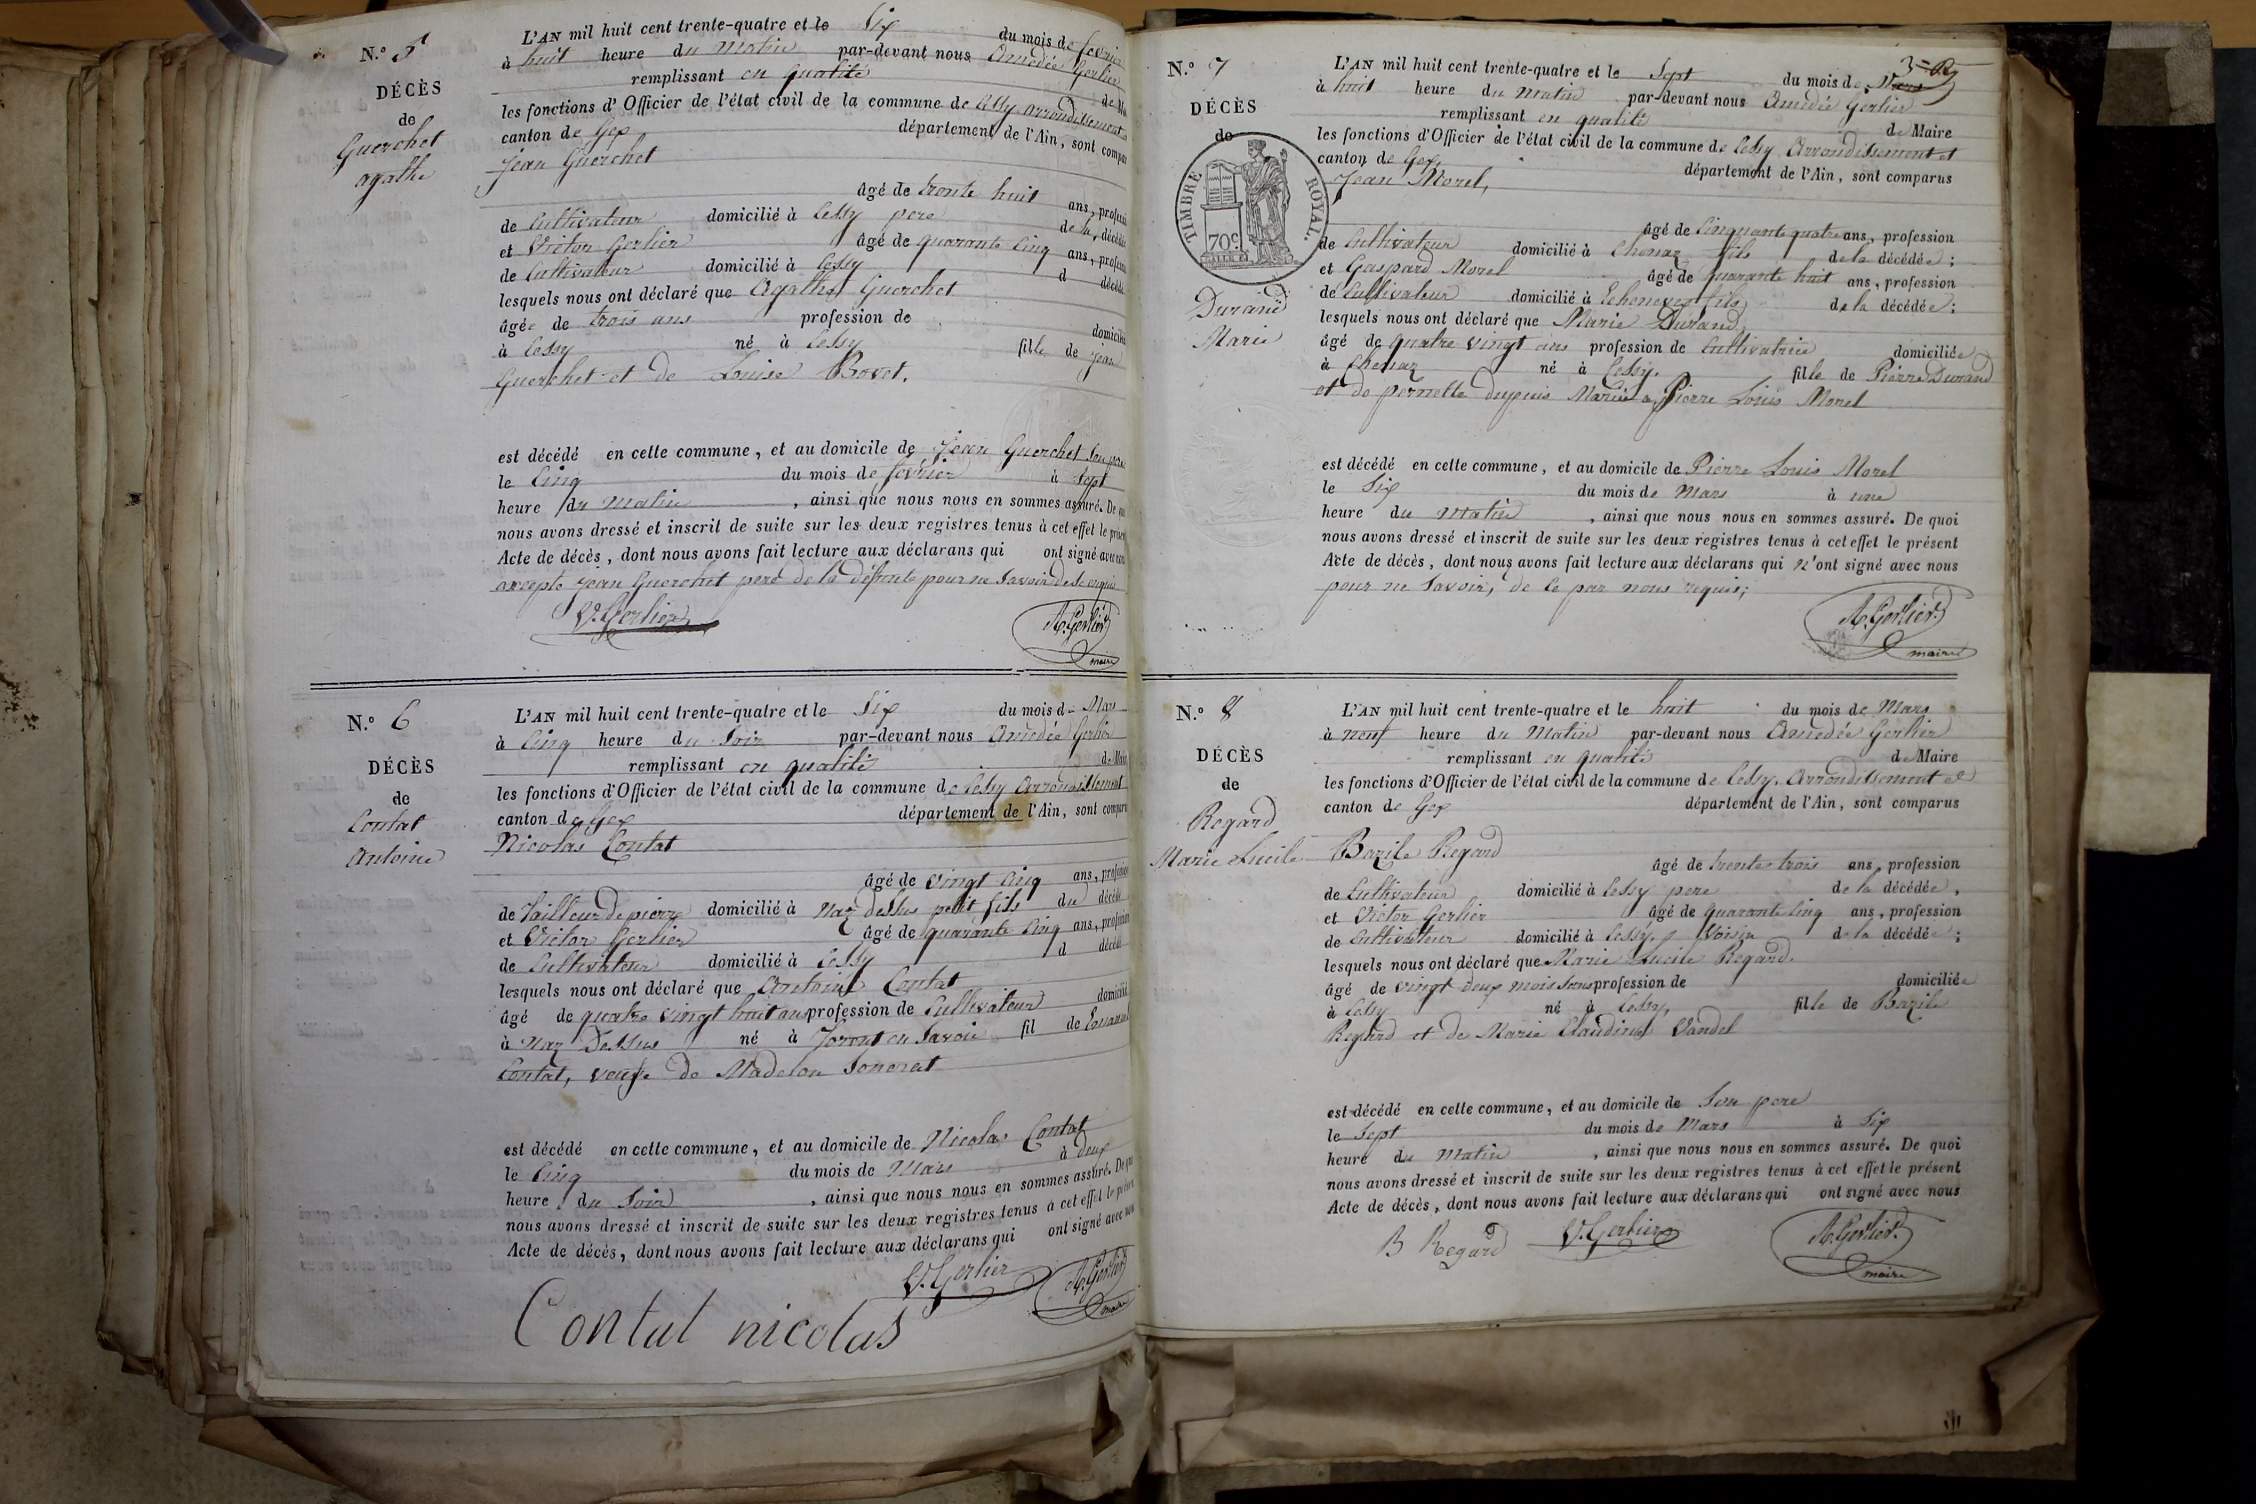 N.º 5
DÉCÈS
de
Guerchet
agathe
L'AN mil huit cent trente-quatre et le Six du mois de fevrier
à huit heure du Matin par-devant nous Amedée Gerlier
remplissant en qualité de
les fonctions d'Officier de l'état civil de la commune de Cessy arrondissement
canton de Gex département de l'Ain, sont
Jean Guerchet
âgé de trente huit ans,
de Cultivateur domicilié à Cessy pere de la décédée
et Victor Gerlier âgé de quarante Cinq ans,
de Cultivateur domicilié à Cessy d
lesquels nous ont déclaré que Agathe Guerchet
âgée de trois ans profession de
à Cessy né à Cessy fille de Jean
Guerchet et de Louise Bovet.
est décédé en cette commune, et au domicile de Jean Guerchet Son pere
le Cinq du mois de février à Sept
heure du Matin, ainsi que nous nous en sommes assuré. De
nous avons dressé et inscrit de suite sur les deux registres tenus à cet effet le
Acte de décès, dont nous avons fait lecture aux déclarans qui ont signé avec nous
excepté Jean Guerchet pere de la défunte pour ne Savoir de Ce requis
V. Gerlier
A. Gerlier
maire
N.º 6
DÉCÈS
de
Contat
Antoine
L'AN mil huit cent trente-quatre et le Six du mois de Mars
à Cinq heure du Soir par-devant nous Amedée Gerlier
remplissant en qualité de
les fonctions d'Officier de l'état civil de la commune de Cessy arrondissement
canton de Gex département de l'Ain, sont
Nicolas Contat
âgé de vingt Cinq ans,
de Tailleur de pierre domicilié à Naz dessus petit fils du décédé
et Victor Gerlier âgé de quarante Cinq ans, profession
de Cultivateur domicilié à Cessy d décédé
lesquels nous ont déclaré que Antoine Contat
âgé de quatre vingt huit ans profession de Cultivateur
à Naz Dessus né à en Savoie fil de
Contat, veuf de Madelon
est décédé en cette commune, et au domicile de Nicolas Contat
le Cinq du mois de Mars à deux
heure du Soir, ainsi que nous nous en sommes assuré. De
nous avons dressé et inscrit de suite sur les deux registres tenus à cet effet le
Acte de décès, dont nous avons fait lecture aux déclarans qui ont signé avec nous
V. Gerlier
A. Gerlier
maire
Contat nicolas
N.º 7
DÉCÈS
de
TIMBRE ROYAL.
70c
Durand
Marie
L'AN mil huit cent trente-quatre et le Sept du mois de Mars
à huit heure du Matin par-devant nous Amedée Gerlier
remplissant en qualité de Maire
les fonctions d'Officier de l'état civil de la commune de Cessy Arrondissement et
canton de Gex, département de l'Ain, sont comparus
Jean Morel,
âgé de Cinquante quatre ans, profession
de Cultivateur domicilié à Chenaz fils de la décédée;
et Gaspard Morel âgé de Quarante huit ans, profession
de Cultivateur domicilié à Echenevex fils de la décédée;
lesquels nous ont déclaré que Marie Durand
âgé de quatre vingt ans profession de Cultivatrice domiciliée
à Chenaz né à Cessy. fille de Pierre Durand
et de pernette dupuis Mariée a Pierre Louis Morel
est décédé en cette commune, et au domicile de Pierre Louis Morel
le Six du mois de Mars à une
heure du Matin, ainsi que nous nous en sommes assuré. De quoi
nous avons dressé et inscrit de suite sur les deux registres tenus à cet effet le présent
Acte de décès, dont nous avons fait lecture aux déclarans qui n'ont signé avec nous
pour ne Savoir, de Ce par nous requis;
A. Gerlier
maire
N.º 8
DÉCÈS
de
Regard
Marie Lucile
L'AN mil huit cent trente-quatre et le huit du mois de Mars
à neuf heure du Matin par-devant nous Amedée Gerlier
remplissant en qualité de Maire
les fonctions d'Officier de l'état civil de la commune de Cessy. Arrondissement et
canton de Gex département de l'Ain, sont comparus
Bazile Regard
âgé de trente trois ans, profession
de Cultivateur domicilié à Cessy pere de la décédée,
et Victor Gerlier âgé de quarante Cinq ans, profession
de Cultivateur domicilié à Cessy, Voisin de la décédée;
lesquels nous ont déclaré que Marie Lucile Regard.
âgé de vingt deux mois Sans profession de domiciliée
à Cessy né à Cessy, fille de Bazile
Regard et de Marie Claudine Vandel
est décédé en cette commune, et au domicile de Son pere
le Sept du mois de Mars à Six
heure du Matin, ainsi que nous nous en sommes assuré. De quoi
nous avons dressé et inscrit de suite sur les deux registres tenus à cet effet le présent
Acte de décès, dont nous avons fait lecture aux déclarans qui ont signé avec nous
B Regard V. Gerlier
A. Gerlier
maire